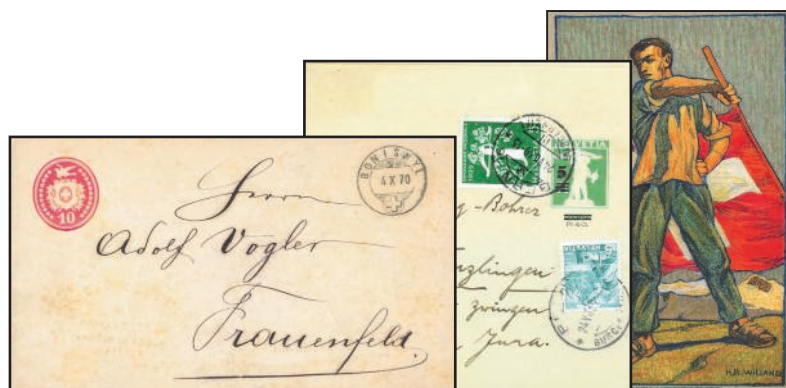 10
BONISWYL
4 X 70
Herrn
Adolf Vogler
Frauenfeld.
HELVETIA
5
-Bohrer
nzlingen
zwingen
Jura.
H.B.WIELAND